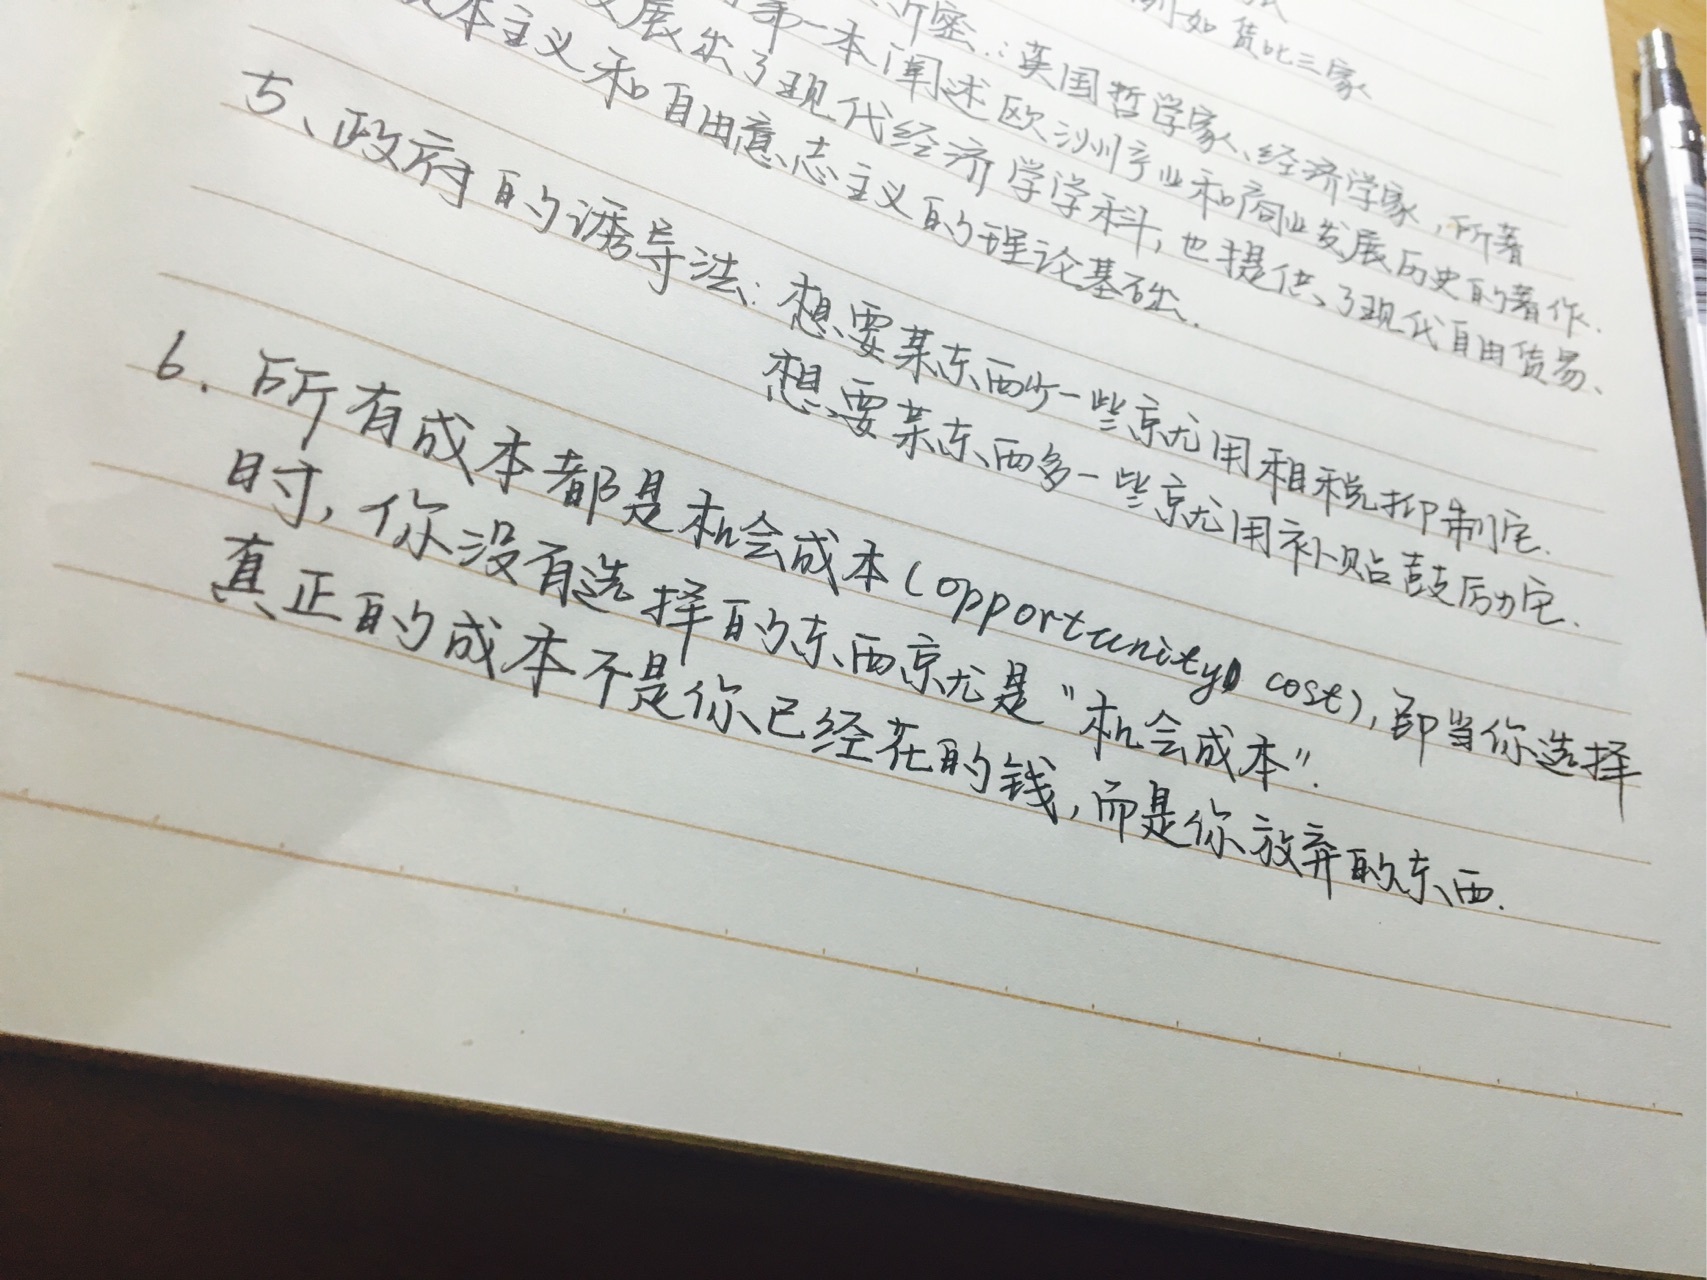 例如货比三家
斯密.：英国哲学家、经济学家，所著
第一本阐述欧洲产业和商业发展历史的著作.
发展出了现代经济学学科，也提供了现代自由贸易、
本主义和自由意志主义的理论基础.
5、政府的诱导法：想要某东西少一些就用相税抑制它.
想要某东西多一些就用补贴鼓励它.
6. 所有成本都是机会成本（opportunity cost），即当你选择
时，你没有选择的东西就是“机会成本”.
真正的成本不是你已经花的钱，而是你放弃的东西.